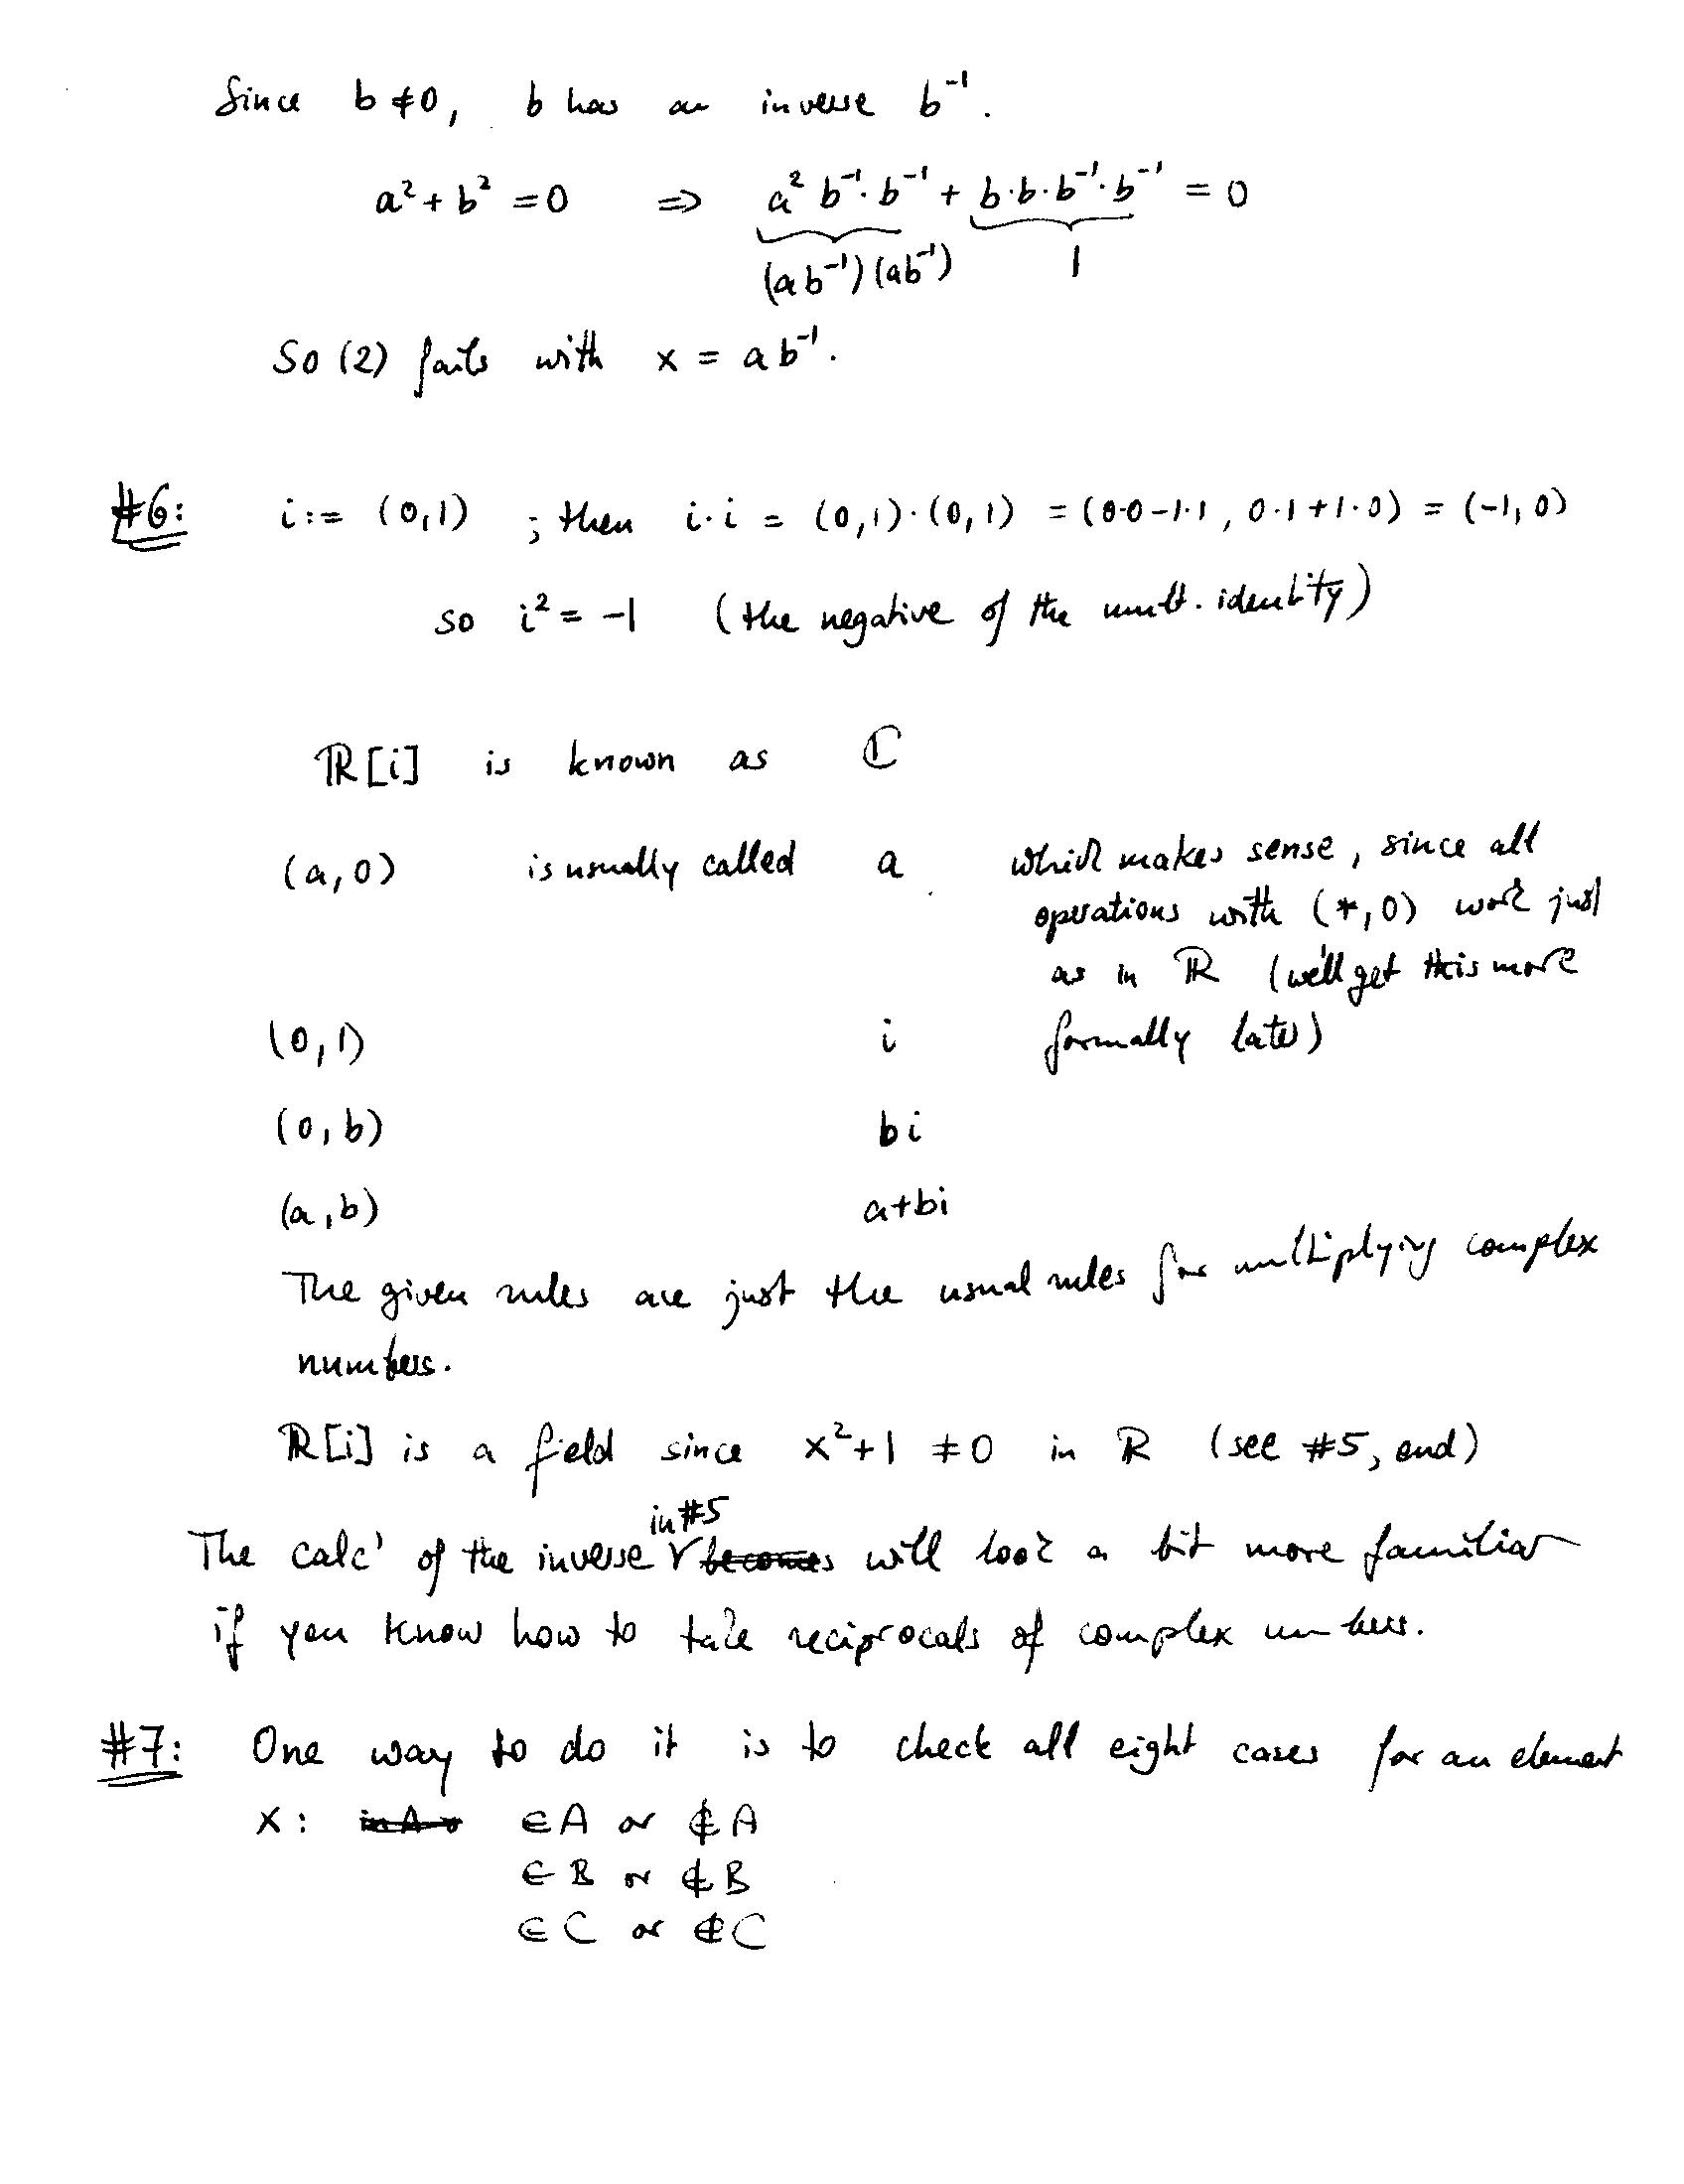 Since b ≠ 0, b has an inverse b⁻¹.
a² + b² = 0 ⇒ a² b⁻¹·b⁻¹ + b·b·b⁻¹·b⁻¹ = 0
(ab⁻¹)(ab⁻¹) 1
So (2) fails with x = ab⁻¹.
#6: i := (0,1) ; then i·i = (0,1)·(0,1) = (0·0-1·1, 0·1+1·0) = (-1,0)
so i² = -1 (the negative of the mult. identity)
ℝ[i] is known as ℂ
(a,0) is usually called a which makes sense, since all
operations with (*,0) work just
as in ℝ (we'll get this more
formally later)
(0,1) i
(0,b) bi
(a,b) a+bi
The given rules are just the usual rules for multiplying complex
numbers.
ℝ[i] is a field since x²+1 ≠ 0 in ℝ (see #5, end)
in #5
The calc' of the inverse becomes will look a bit more familiar
if you know how to take reciprocals of complex numbers.
#7: One way to do it is to check all eight cases for an element
x: in A ∈A or ∉A
∈B or ∉B
∈C or ∉C